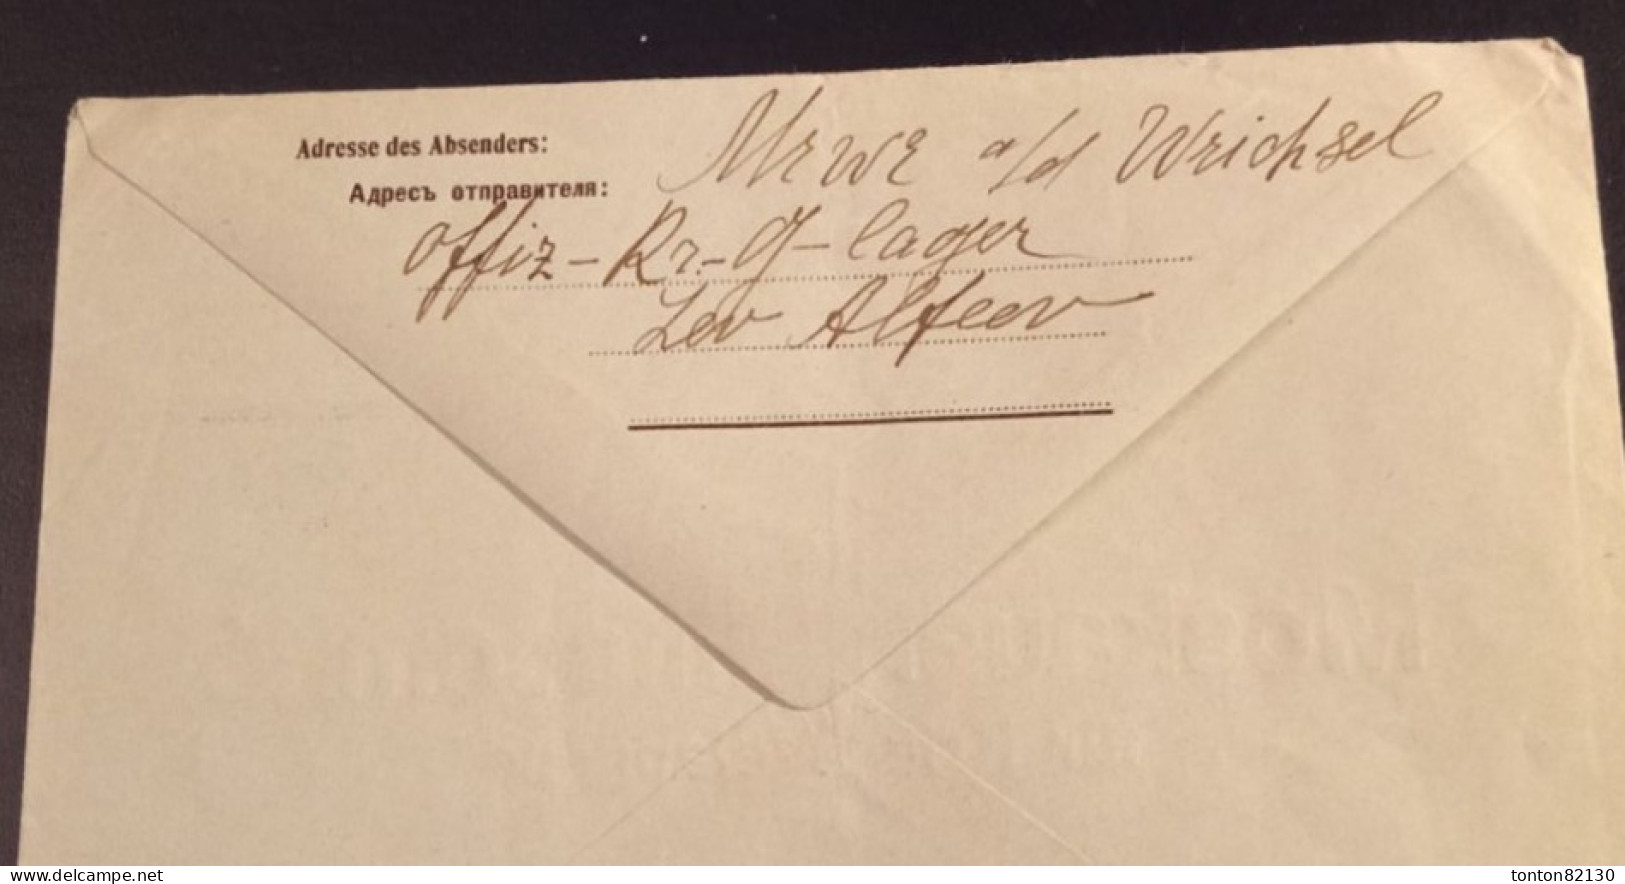 Adresse des Absenders:
Адресъ отправителя:
Mewe a/d Weichsel
Offiz-Kr.-G-lager
Lev Alfeev
delcampe.net
tonton82130